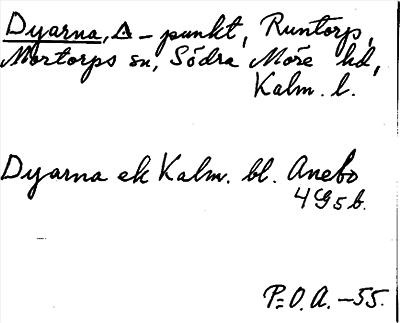 Dyarna, Δ-punkt, Runtorp,
Mortorps sn, Södra Möre hd,
Kalm. l.
Dyarna ek Kalm. bl. Anebo
4G5b.
P:O.A. -55.